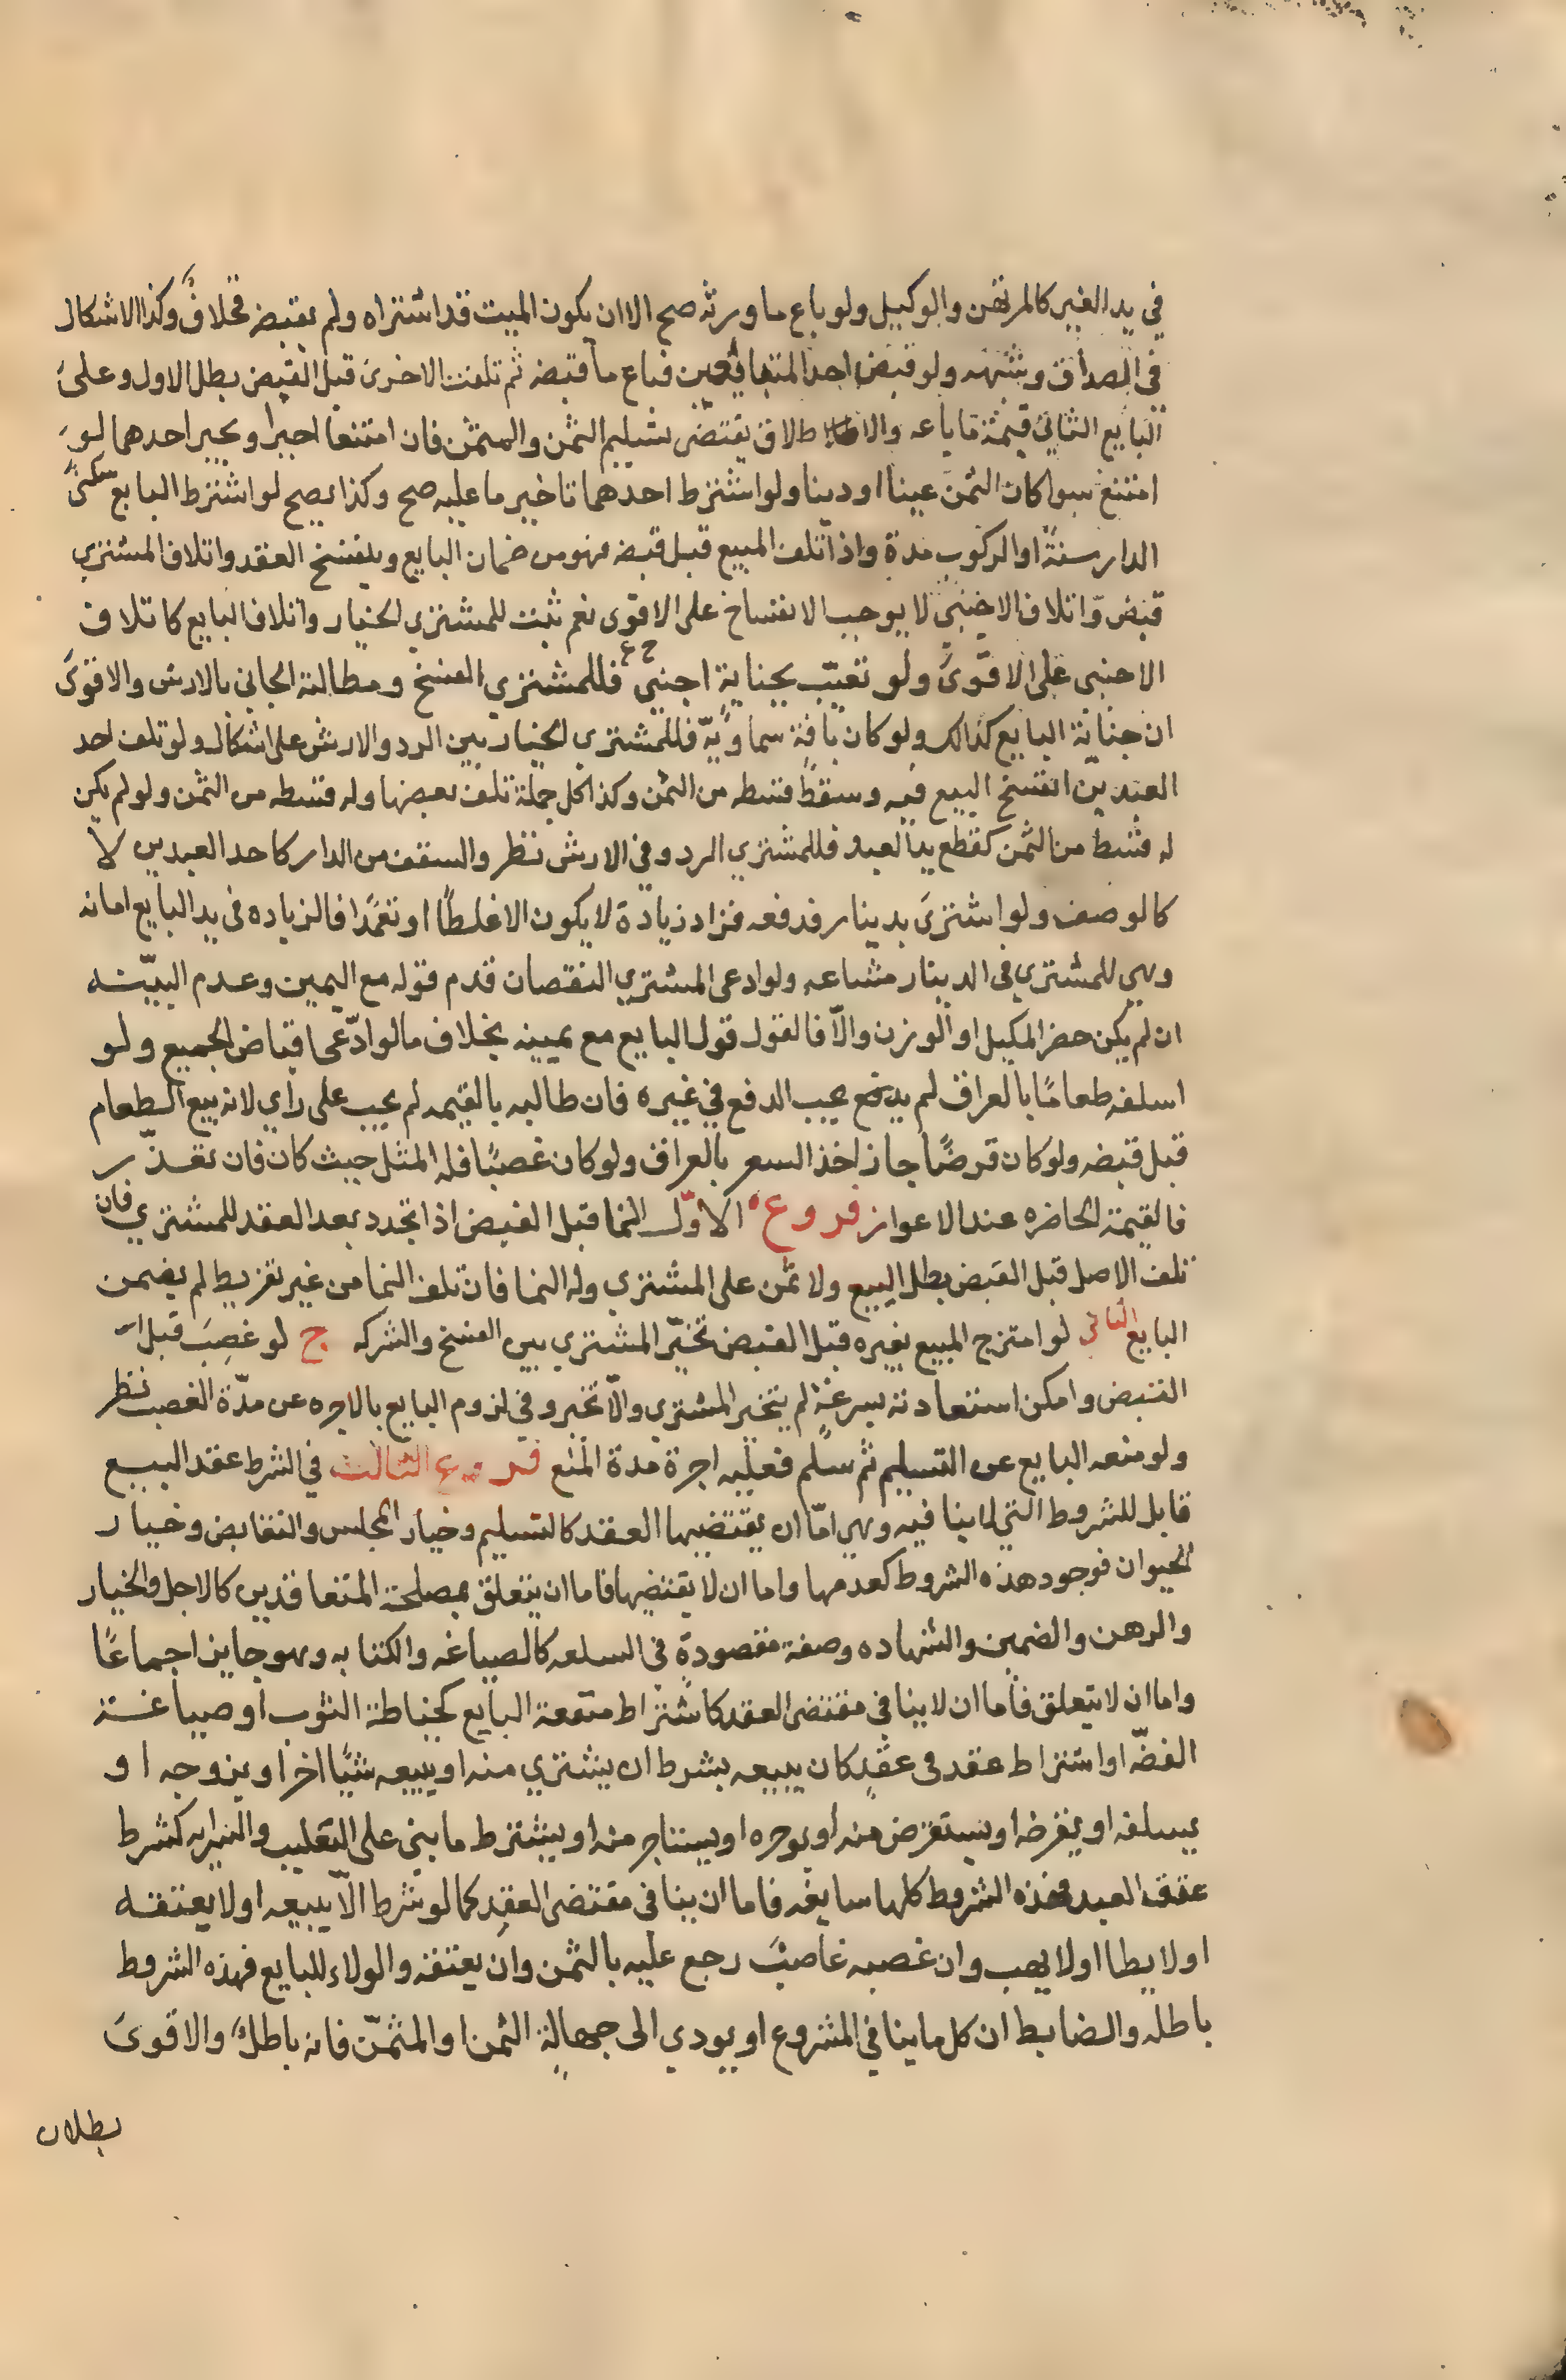 في يد الغير كالمرتهن والوكيل ولو باع ما ورثه صح الا ان يكون الميت قد اشتراه ولم يقبضه فخلاف وكذا الاشكال
في الصداق وشبهه ولو قبض احد المتبايعين فباع ما قبضه ثم تلفت الاخرى قبل القبض بطل الاول وعلى
البايع الثاني قيمة ما باعه والاطلاق يقتضى تسليم الثمن والمثمن فان امتنعا اجبرا ويجبر احدهما لو
امتنع سوا كان الثمن عينا او دينا ولو اشترط احدهما تاخير ما عليه صح وكذا يصح لو اشترط البايع سكنى
الدار سنةً او الركوب مدة واذا تلف المبيع قبل قبضه فهو من ضمان البايع وينفسخ العقد واتلاف المشتري
قبض واتلاف الاجنبي لا يوجب الانفساخ على الاقوى نعم ثبت للمشتري الخيار واتلاف البايع كاتلاف
الاجنبي على الاقوى ولو تعيّب بجناية اجنبي فللمشتري الفسخ ومطالبة الجاني بالارش والاقوى
ان جناية البايع كذالك ولو كان بافة سماويّة فللمشتري الخيار بين الرد والارش على اشكال ولو تلف احد
العبدين انفسخ البيع فيه وسقط قسطه من الثمن وكذا كل جملة تلف بعضها وله قسطه من الثمن ولو لم يكن
له قسط من الثمن كقطع يد العبد فللمشتري الرد وفي الارش نظر والسقف من الدار كاحد العبدين لا
كالوصف ولو اشترى بدينار فدفعه فزاد زيادة لا يكون الا غلطًا او تعمدًا فالزياده في يد البايع امانه
وهي للمشتري في الدينار مشاعه ولو ادعى المشتري النقصان قدم قوله مع اليمين وعدم البيّنه
ان لم يكن حضر المكيل او الوزن والّا فالقول قول البايع مع يمينه بخلاف ما لو ادّعى اقباض الجميع ولو
اسلفه طعامًا بالعراق لم يجب الدفع في غيره فان طالبه بالقيمه لم يجب على راي لانه بيع الطعام
قبل قبضه ولو كان قرضًا جاز اخذ السعر بالعراق ولو كان غصبًا فله المثل حيث كان فان تعذّر
فالقيمة الحاضره عند الاعواز فروع الاوّل النما قبل القبض اذا تجدد بعد العقد للمشتري فان
تلف الاصل قبل القبض بطل البيع ولا ثمن على المشتري وله النما فان تلف النما من غير تفريط لم يضمن
البايع الثاني لو امتزج المبيع بغيره قبل القبض تخيّر المشتري بين الفسخ والشركه ج لو غصِبَ قبل
القبض وامكن استعادته بسرعةٍ لم يتخير المشتري والّا تخير وفي لزوم البايع بالاجره عن مدّة الغصب نظر
ولو منعه البايع عن التسليم ثم سلم فعليه اجرة مدة المنع فروع الثالث في الشرط عقد البيع
قابل للشروط التي لا ينافيه وهي امّا ان يقتضيها العقد كالتسليم وخيار المجلس والتقابض وخيار
الحيوان فوجود هذه الشروط كعدمها واما ان لا يقتضيها فاما ان يتعلق بمصلحة المتعاقدين كالاجل والخيار
والرهن والضمين والشهاده وصفة مقصودةٍ في السلعه كالصياغه والكتابه وهو جايز اجماعًا
واما ان لا يتعلق فاما ان لا ينافي مقتضى العقد كاشتراط منفعة البايع كخياطة الثوب او صياغة
الفضّه او اشتراط عقد في عقدٍ كان يبيعه بشرط ان يشتري منه او يبيعه شيًا اخر او يزوجه او
يسلفه او يقرضه او يستقرض منه او يوجره او يستاجر منه او يشترط ما يبنى على التغليب والسرايه كشرط
عتق العبد فهذه الشروط كلها سايغه فاما ان ينافى مقتضى العقد كما لو شرط الّا يبيعه او لا يعتقه
او لا يطا او لا يهب وان غصبه غاصبٌ رجع عليه بالثمن وان يعتقه والولاء للبايع فهذه الشروط
باطله والضابط ان كل ما ينافي المشروع او يودي الى جهالة الثمن او المثمّن فانه باطلٌ والاقوى
بطلان